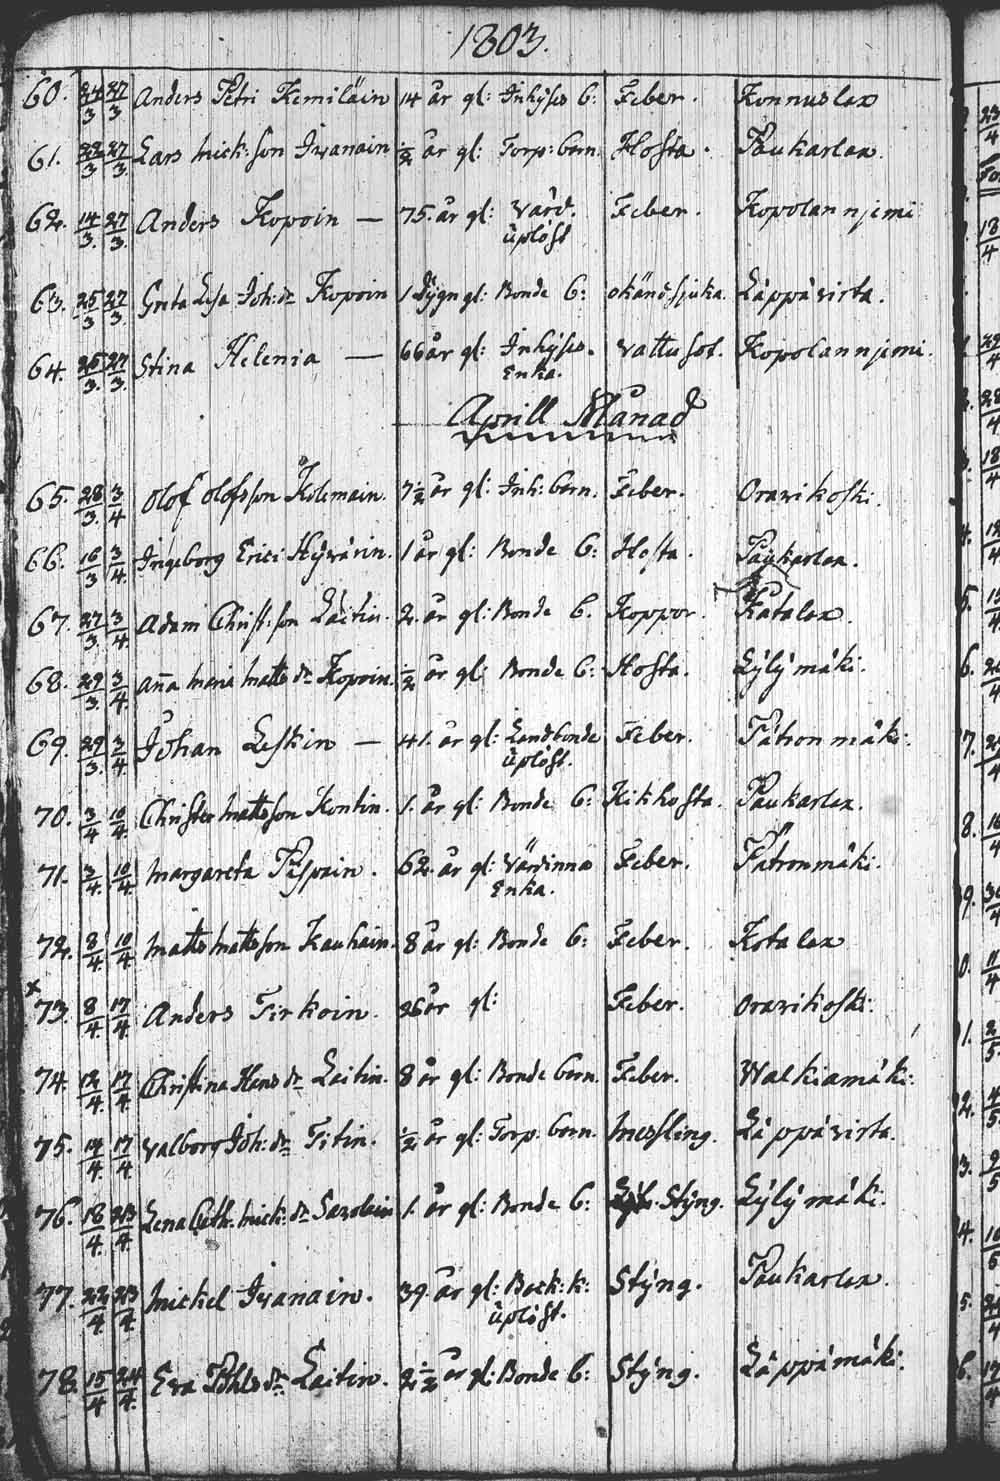 1803.
60. 24/3 27/3 Anders Petri Kemiläin 14 år gl: Inhyses b: Feber. Konnuslax
61. 22/3 27/3 Lars Mick: son Ivanain ½ år gl: Torp: barn. Hosta. Paukarlax.
62. 14/3 27/3 Anders Kopoin — 75. år gl: Värd. Feber. Kopolanniemi
upløst
63. 25/3 27/3 Greta Lisa Joh: dr Kopoin 1 dygn gl: Bonde b: okänd sjuka. Läppävirta.
64. 25/3 27/3 Stina Helenia — 66 år gl: Inhyses. Vattusot. Kopolanniemi.
Enka.
Aprill Månad
65. 28/3 3/4 Olof Olofsson Kolemain. 7½ år gl: Inh: barn. Feber. Oravikoski:
66. 16/3 3/4 Ingeborg Erici Hyvärin. 1 år gl: Bonde b: Hosta. Paukarlax.
67. 27/3 3/4 Adam Christ: son Laitin. 2. år gl: Bonde b. Koppor. Kotalax.
68. 29/3 3/4 Aña Maria Matts dr Kopoin. ½ år gl: Bonde b: Hosta. Lylymäki.
69. 29/3 3/4 Johan Leskin — 41. år gl: Landbonde Feber. Patronmäki:
uplöst.
70. 3/4 10/4 Christer Mattsson Kontin. 1. år gl: Bonde b: Kikhosta. Paukarlax.
71. 3/4 10/4 Margareta Pispain. 62. år gl: Värdinna Feber. Patronmäki:
Enka.
72. 8/4 10/4 Matts Mattsson Kauhain. 8 år gl: Bonde b: Feber. Kotalax
x
73. 8/4 17/4 Anders Tirkoin. 26 år gl: Feber. Oravikoski:
74. 12/4 17/4 Christina Hans dr Laitin. 8 år gl: Bonde barn. Feber. Walkiamäki:
75. 14/4 17/4 Valborg Joh: dr Titin. ½ år gl: Torp: barn. Messling. Läppävirta.
76. 18/4 23/4 Lena Cath. Mick: dr Savolain 1. år gl: Bonde b: Styng. Lylymäki:
77. 22/4 23/4 Mickel Ivanain. 39. år gl: Back: k: Styng. Paukarlax.
uplöst.
78. 15/4 24/4 Eva Påhls dr Laitin. 2½ år gl: Bonde b: Styng. Läppämäki: